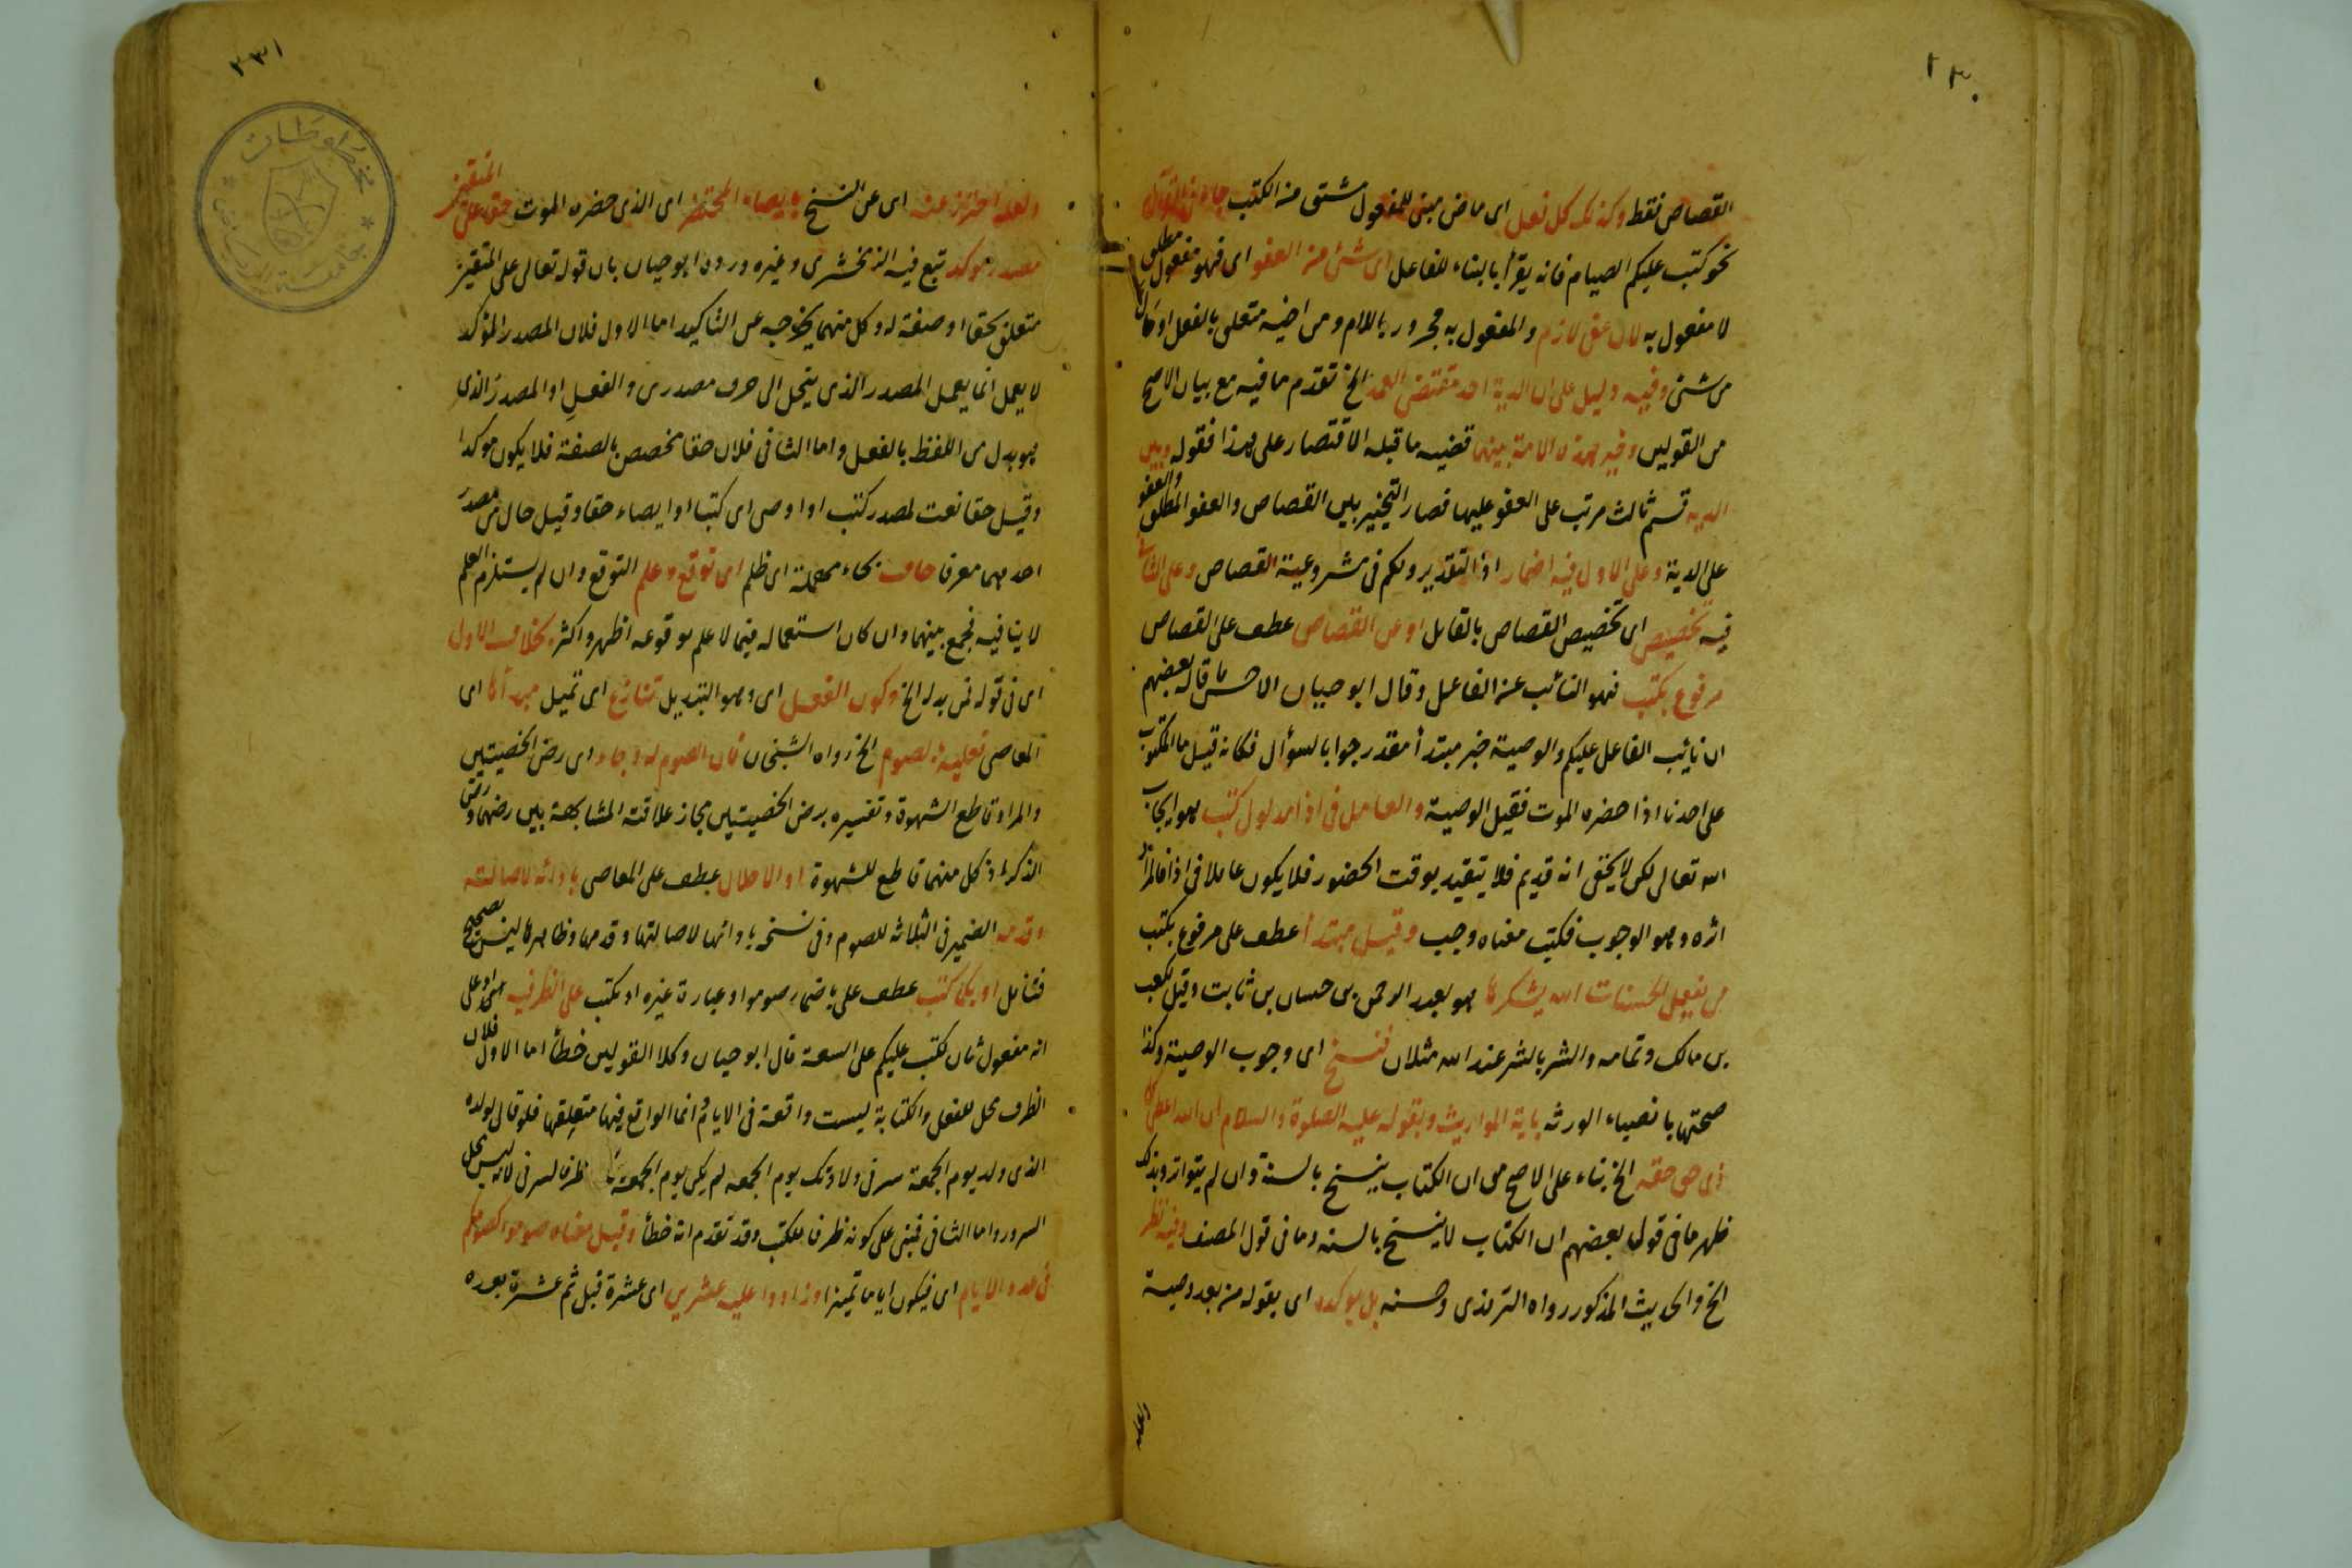 ٢٣٠
القصاص فقط وكذلك كل فعل اى ماض مبنى للمفعول مشتق من الكتب جاء فى القرآن
نحو كتب عليكم الصيام فانه يقرأ بالبناء للفاعل اى شئ من العفو اى فهو مفعول مطلق
لا مفعول به لان عفى لازم والمفعول به مجرور باللام ومن اخيه متعلق بالفعل او حال
من شئ وفيه دليل على ان الدية احد مقتضى العمد الخ تقدم ما فيه مع بيان الاصح
من القولين وخير هذه الامة بينهما قضيه ما قبله الاقتصار على هذا فقوله وبين
الدية قسم ثالث مرتب على العفو عليها فصار التخيير بين القصاص والعفو المطلق والعفو
على الدية وعلى الاول فيه اضمار اذ التقدير ولكم فى مشروعية القصاص وعلى الثانى
فيه تخصيص اى تخصيص القصاص بالقاتل او عن القصاص عطف على القصاص
مرفوع بكتب فهو النائب عن الفاعل وقال ابو حيان الاحسن ما قاله بعضهم
ان نائب الفاعل عليكم والوصية خبر مبتدأ مقدر جوابا لسؤال فكانه قيل ما المكتوب
على احدنا اذا حضره الموت فقيل الوصية والعامل فى اذا مدلول كتب هو ايجاب
الله تعالى لكن لا يخفى انه قديم فلا يتقيد بوقت الحضور فلا يكون عاملا فى اذا فالمراد
اثره وهو الوجوب فكتب معناه وجب وقيل مبتدأ عطف على مرفوع بكتب
من يفعل الحسنات الله يشكرها هو لعبد الرحمن بن حسان بن ثابت وقيل لكعب
بن مالك وتمامه والشر بالشر عند الله مثلان فنسخ اى وجوب الوصية وكذا
صحتها بانصباء الورثه باية المواريث وبقوله عليه الصلوة والسلام ان الله اعطى كل
ذى حق حقه الخ بناء على الاصح من ان الكتاب ينسخ بالسنة وان لم يتواتر وبذلك
ظهر ما فى قول بعضهم ان الكتاب لا ينسخ بالسنه وما فى قول المصنف وفيه نظر
الخ والحديث المذكور رواه الترمذى وحسنه بل يؤكده اى بقوله من بعد وصية
ولعله
٢٣١
ولعله احترز عنه اى عن النسخ بايصاء المحتضر اى الذى حضره الموت حقا على المتقين
مصدر مؤكد تبع فيه الزمخشرى وغيره ورده ابو حيان بان قوله تعالى على المتقين
متعلق بحقا او صفة له وكل منهما يخرجه عن التاكيد اما الاول فلان المصدر المؤكد
لا يعمل انما يعمل المصدر الذى ينحل الى حرف مصدرى والفعل او المصدر الذى
هو بدل من اللفظ بالفعل واما الثانى فلان حقا مخصص بالصفة فلا يكون مؤكدا
وقيل حقا نعت لمصدر كتب او اوصى اى كتبا او ايصاء حقا وقيل حال من مصدر
احدهما معرفا حاف بحاء مهملة اى ظلم اى توقع وعلم التوقع وان لم يستلزم العلم
لا ينافيه فجمع بينهما وان كان استعماله فيما لا علم بوقوعه اظهر واكثر بخلاف الاول
اى فى قوله فمن بدله الخ وكون الفعل اى وهو التبديل تنازع اى تميل مبدأها اى
المعاصى فعليه بالصوم الخ رواه الشيخان فان الصوم له وجاء اى رض الخصيتين
والمراد قاطع الشهوة وتفسيره برض الخصيتين مجاز علاقته المشابهة بين رضهما ورض
الذكر اذ كل منهما قاطع للشهوة او الاخلال عطف على المعاصى بادائه لاصالته
وقدمه الضمير فى الثلاثه للصوم وفى نسخه بادائها لاصالتها وقدمها وظاهرها ليس بصحيح
فتامل او بكما كتب عطف على باضمار صوموا وعبارة غيره او بكتب على الظرفيه انتهى او على
انه مفعول ثان لكتب عليكم على السعة قال ابو حيان وكلا القولين خطأ اما الاول فلان
الظرف محل للفعل والكتابة ليست واقعة فى الايام وانما الواقع فيها متعلقها فلو قال لولده
الذى ولد يوم الجمعة سرنى ولادتك يوم الجمعه لم يكن يوم الجمعة ظرفا لسرنى لانه ليس محل
السرور واما الثانى فمبنى على كونه ظرفا لكتب وقد تقدم انه خطأ وقيل معناه صوموا كصومكم
فى عدد الايام اى فيكون اياما تمييزا وزادوا عليه عشرين اى عشرة قبل ثم عشرة بعده